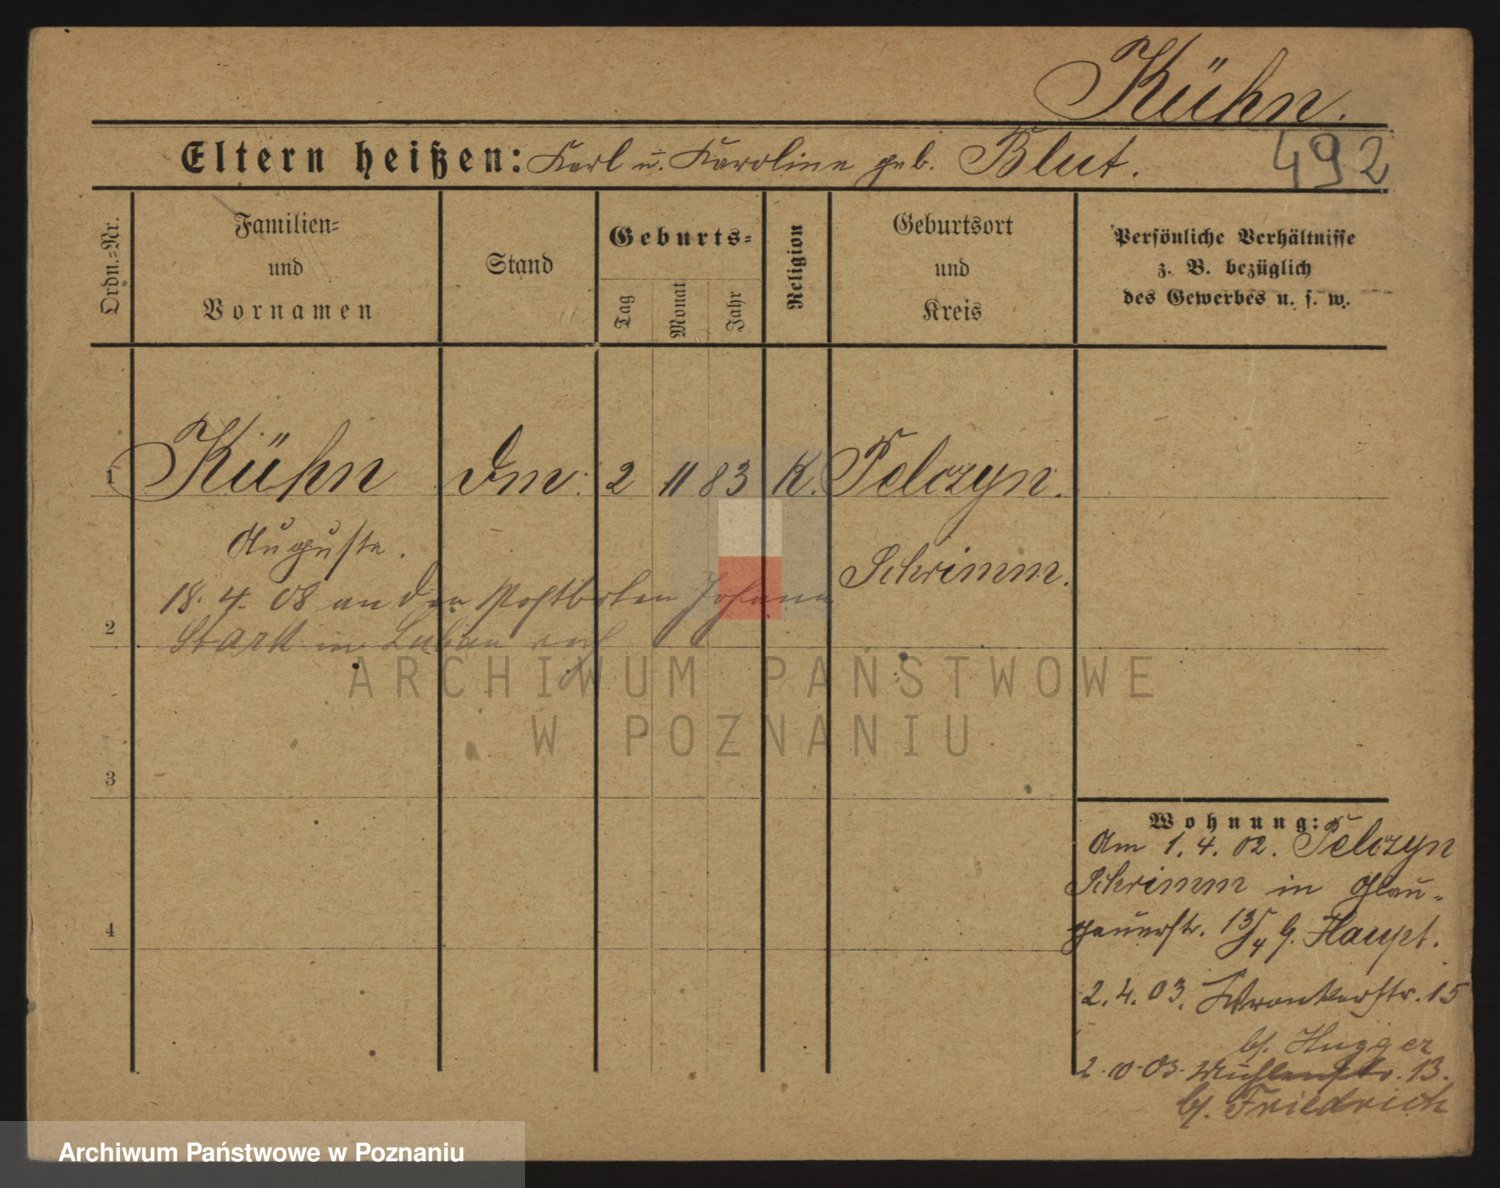 Kühn.
Eltern heißen: Karl u. Karoline geb. Blut.
492
Ordn.-Nr.
Familien-
und
Vornamen
Stand
Geburts-
Tag
Monat
Jahr
Religion
Geburtsort
und
Kreis
Persönliche Verhältnisse
z. B. bezüglich
des Gewerbes u. s. w.
1 Kühn Dm. 2 11 83 K. Pelczyn.
Auguste. Schrimm.
18. 4. 08 an den Postboten Johann
2
Stark in verh
3
4
Wohnung:
Am 1. 4. 02. Pelczyn
Schrimm in Glau-
gauerstr. 13/4 b. Haupt.
2. 4. 03. Wronkerstr. 15
bh. Hugger
2. 10. 03. Mühlenstr. 13.
bh. Friedrich
ARCHIWUM PAŃSTWOWE
W POZNANIU
Archiwum Państwowe w Poznaniu